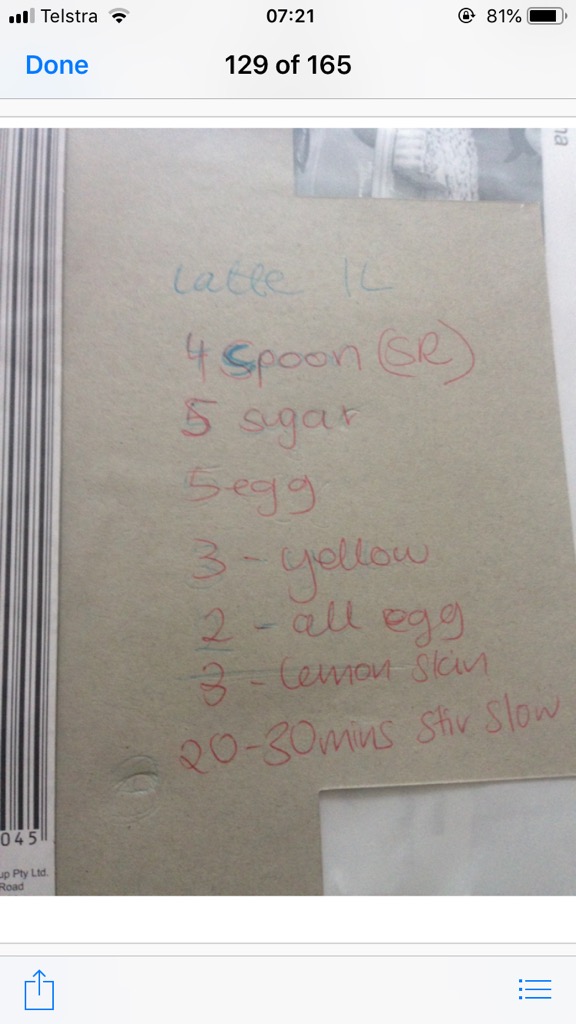 Telstra 07:21 81%
Done 129 of 165
na
Latte 1L
4 Spoon (SR)
5 sugar
5 egg
3 - yellow
2 - all egg
3 - Lemon Skin
20-30mins Stir Slow
045
up Pty Ltd.
Road